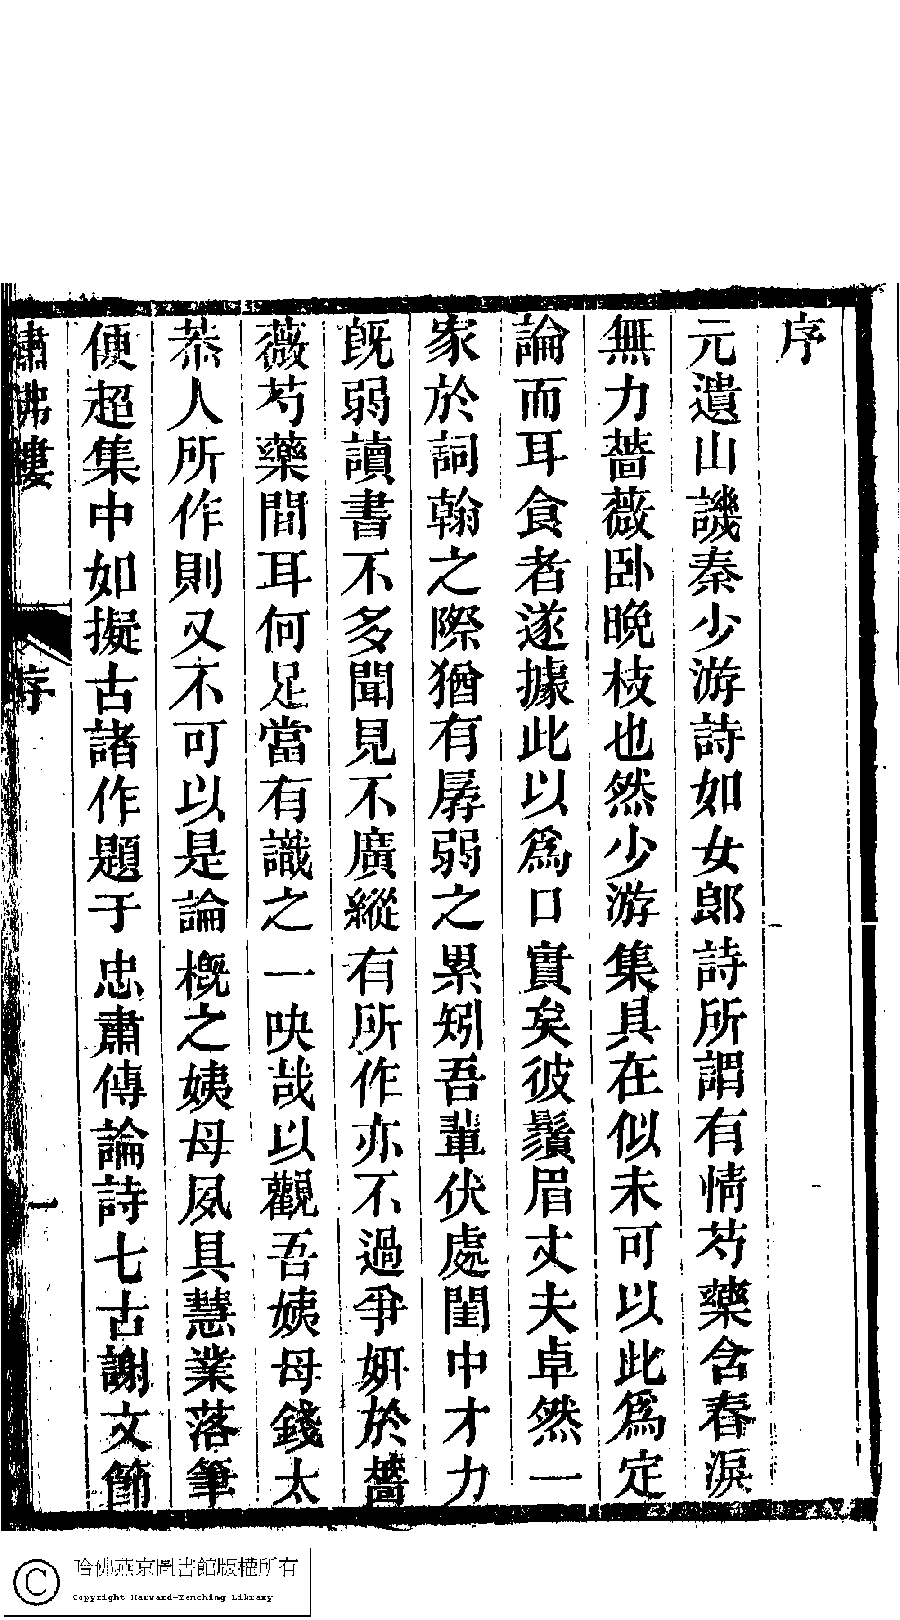 序
元遺山譏秦少游詩如女郎詩所謂有情芍藥含春淚
無力薔薇卧晚枝也然少游集具在似未可以此爲定
論而耳食者遂據此以爲口實矣彼鬚眉丈夫卓然一
家於詞翰之際猶有孱弱之累矧吾輩伏處閨中才力
既弱讀書不多聞見不廣縱有所作亦不過爭妍於薔
薇芍藥間耳何足當有識之一吷哉以觀吾姨母錢太
恭人所作則又不可以是論概之姨母夙具慧業落筆
便超集中如擬古諸作題于忠肅傳論詩七古謝文節
繡佛樓
序
一
哈佛燕京圖書館版權所有
Copyright Harvard-Yenching Library